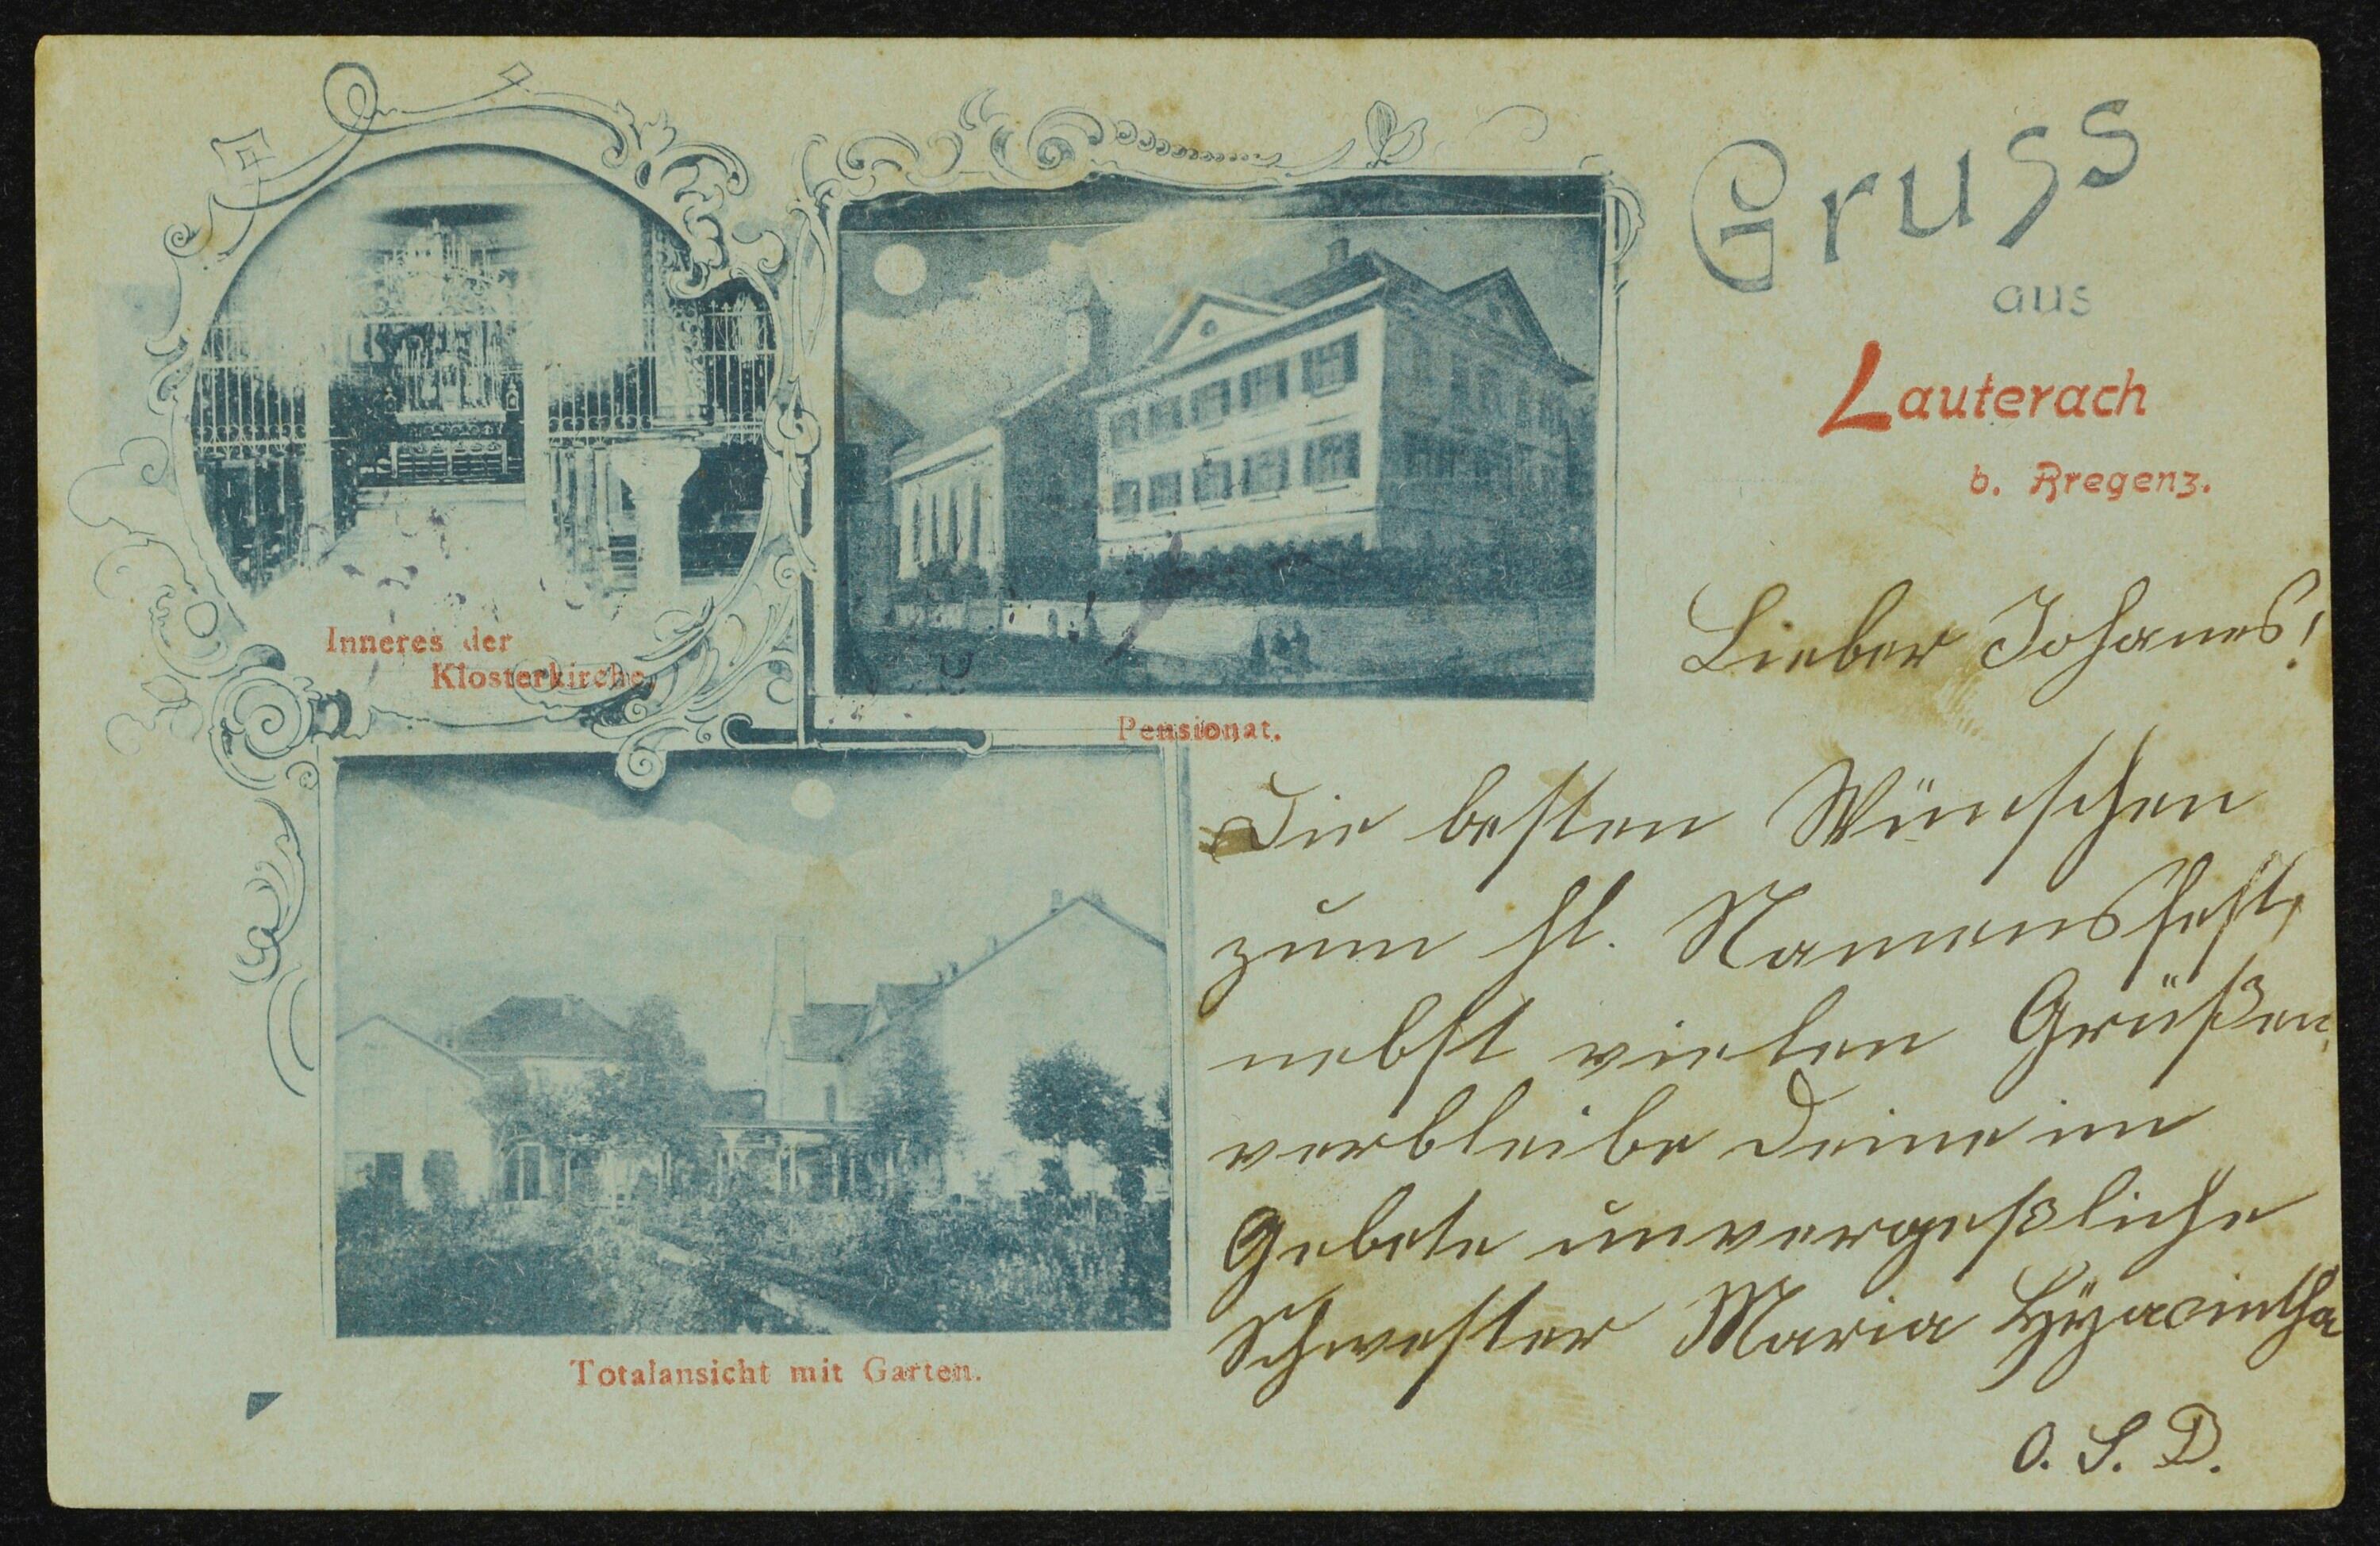 Gruss
aus
Lauterach
b. Bregenz.
Inneres der
Klosterkirche.
Pensionat.
Totalansicht mit Garten.
Lieber Johanes!
Die besten Wünschen
zum hl. Namensfest,
nebst vielen Grüßen,
verbleibe Deine im
Gebete unvergeßliche
Schwester Maria Hÿacintha
O. S. D.